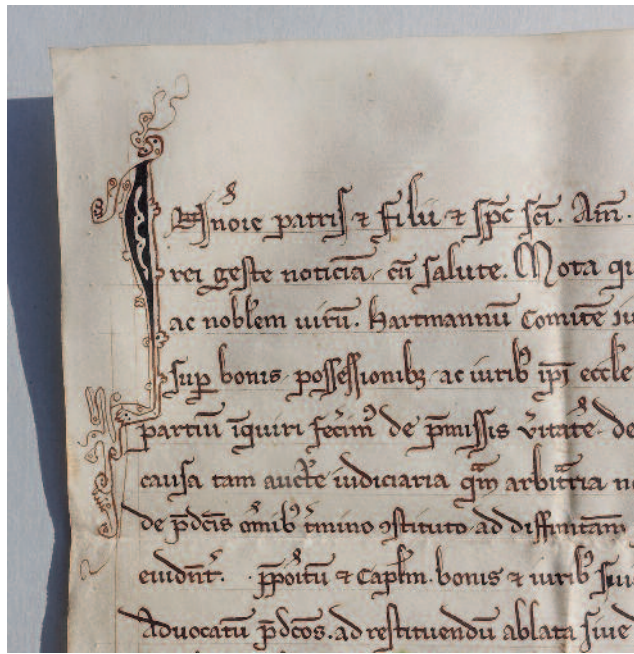 In noıe patris ⁊ filii ⁊ sp̄c sc̄i. Am̄.
rei geste noticiā. cū salute. Mota qu
ac nobl̄em uirū. Hartmannū Comitē iu
sup bonis possessionibꝫ ac iuribꝫ ip̄i eccle
partiū īquiri fecim᷒ de p̄missis v̾itate᷒ de
causa tam auct̄e iudiciaria qm̄ arbitͣria no
de p̄dcīs om̄ibꝫ t̾mino ꝯstituto ad diffinitam
euidēnt᷒. p̄poitū ⁊ Caplm̄. bonis ⁊ iuribꝫ sui
Aduocatū p̄dcōs. ad restituendū ablata siue